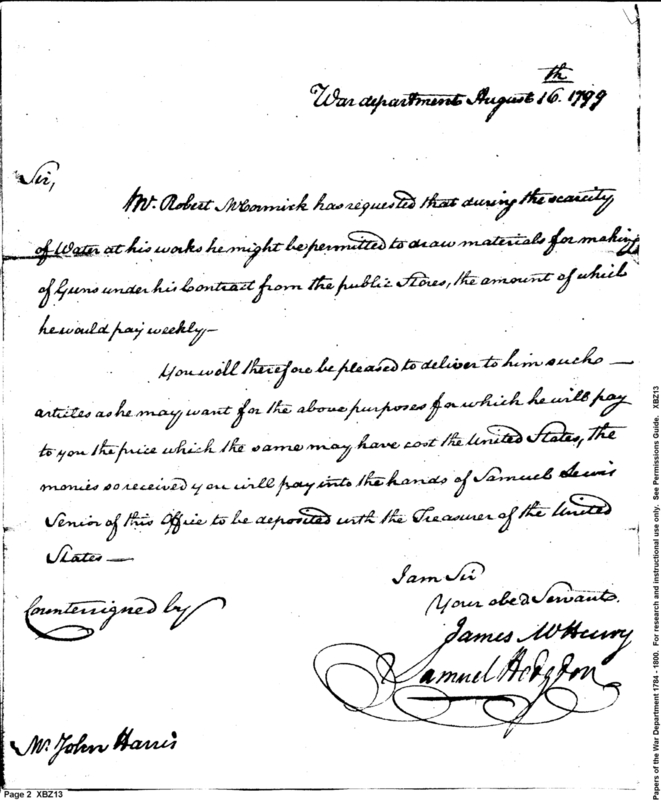 War department August 16th. 1799
Sir,
Mr. Robert McCormick has requested that during the scarcity
of Water at his works he might be permitted to draw materials for making
of Guns under his Contract from the public Stores, the amount of which
he would pay weekly—
You will therefore be pleased to deliver to him such —
articles as he may want for the above purposes for which he will pay
to you the price which the same may have cost the United States, the
monies so received you will pay into the hands of Samuel Lewis
Senior of this Office to be deposited with the Treasurer of the United
States —
I am Sir
Your obed Servants.
Countersigned by
James McHenry
Samuel Hodgdon
Mr. John Harris
Page 2 XBZ13
Papers of the War Department 1784 - 1800. For research and instructional use only. See Permissions Guide. XBZ13